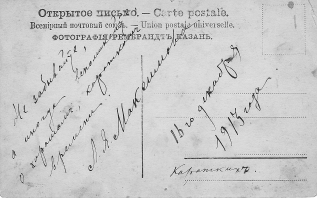 Открытое письмо. — Carte postale.
Всемірный почтовый союз. — Union postale universelle.
ФОТОГРАФІЯ РЕМБРАНДТЪ КАЗАНЬ.
Не забывайте,
а иногда
о хорошемъ,
времени
Л. Я. Максимова
16го декабря
1913 года.